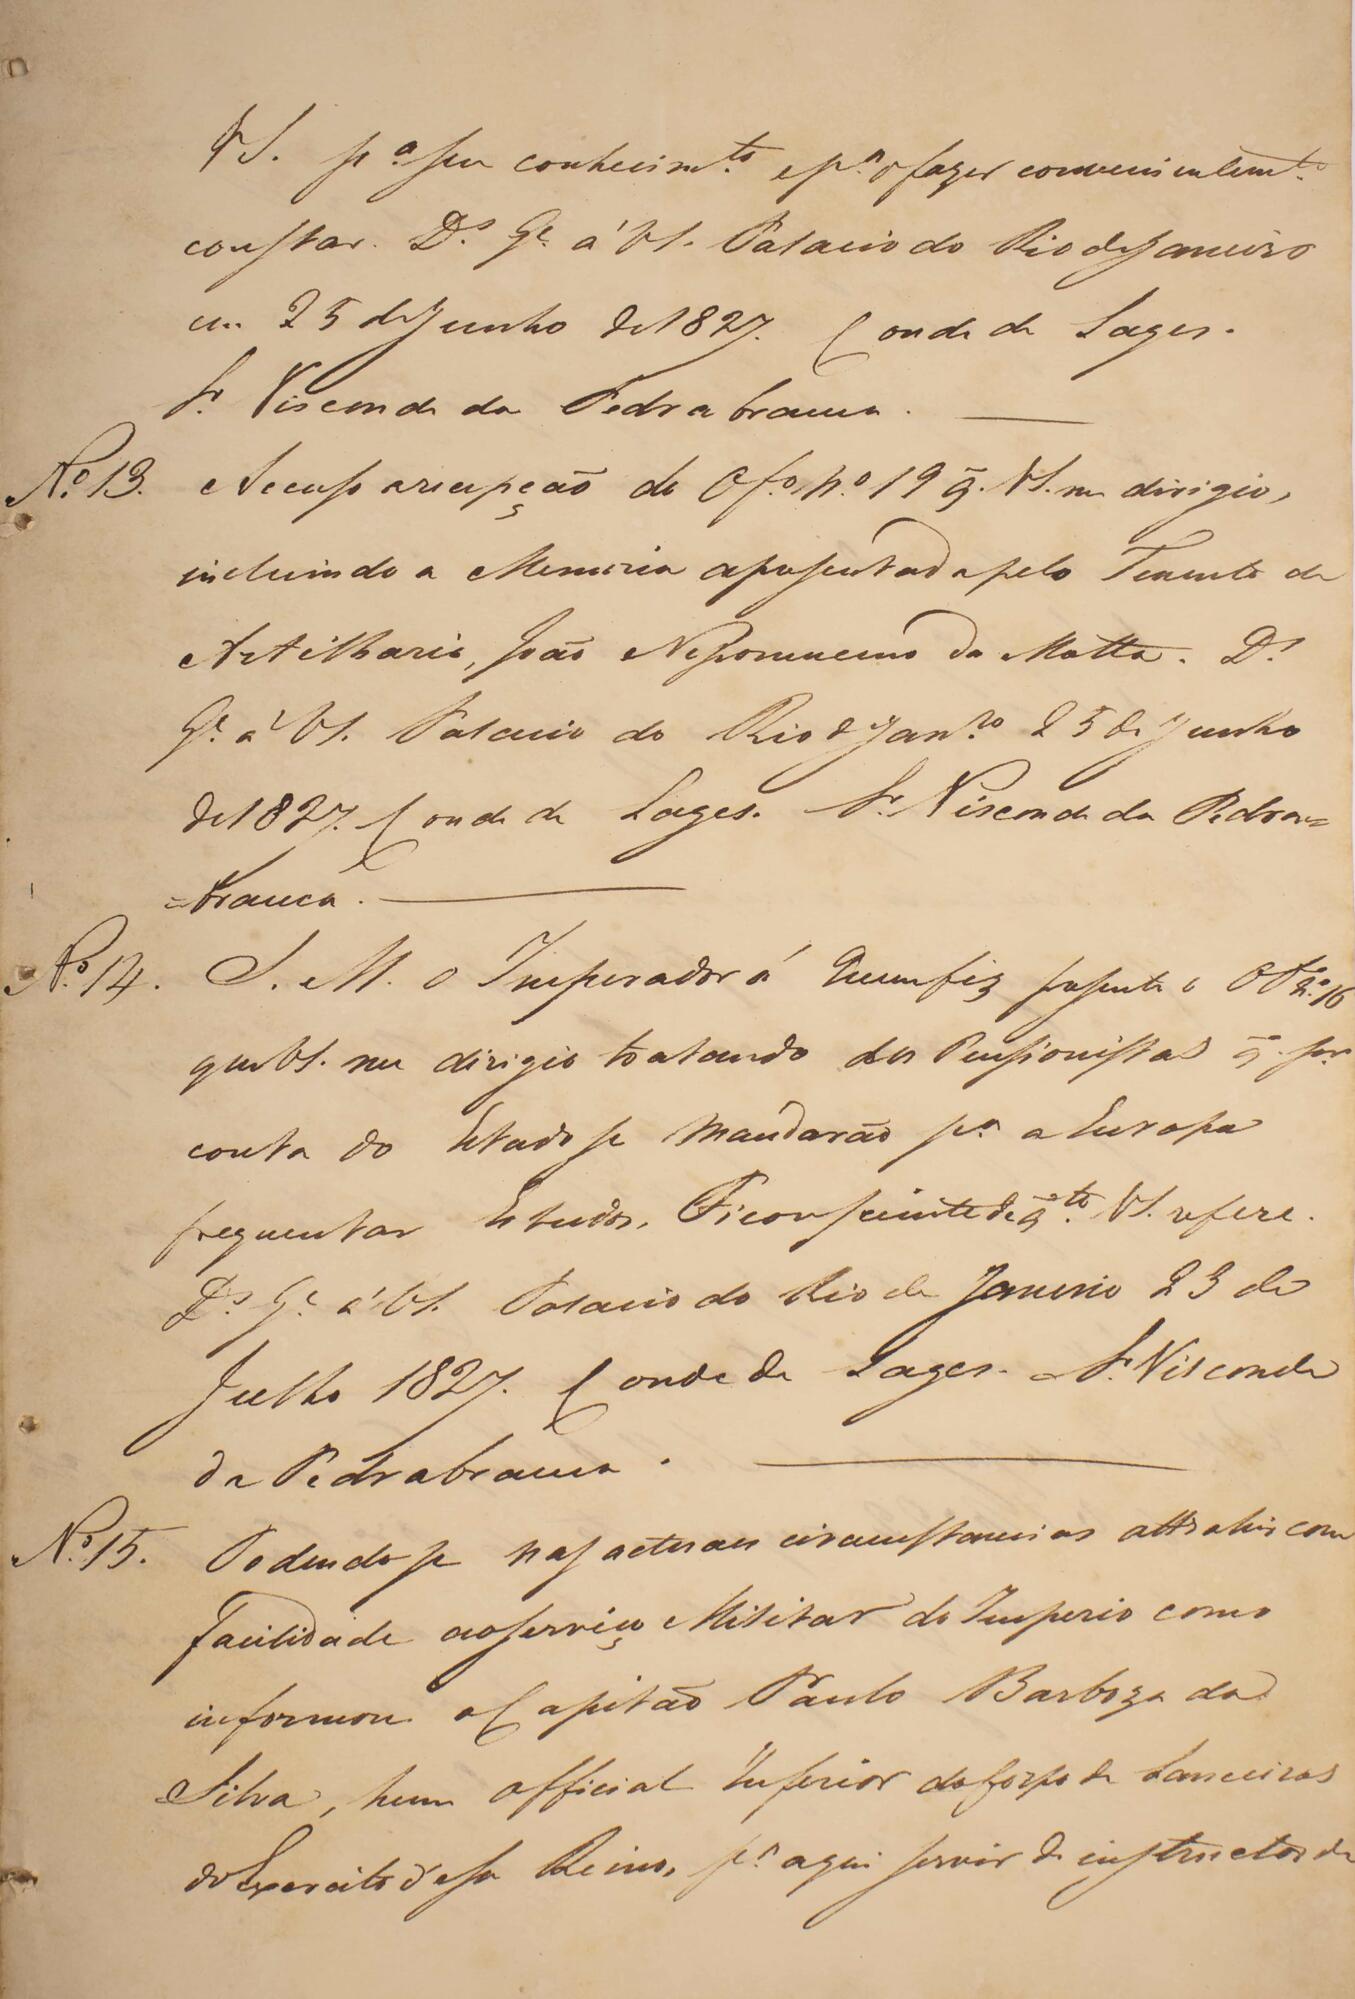 VS. pª seu conhecimto e pª o fazer convenientemte
constar. Ds. Ge. a' VS. Palacio do Rio de Janeiro
em 25 de Junho de 1827. Conde de Lages.
Sr. Visconde da Pedrabranca.
No. 13. Accuso a recepção do Ofo. No. 19 q̃. VS. me dirigio,
incluindo a Memoria apresentada pelo Tenente de
Artilharia, João Nepomuceno da Matta. Ds.
Ge. a' VS. Palacio do Rio de Janro 25 de Junho
de 1827. Conde de Lages. Sr. Visconde da Pedra=
=branca.
No. 14. S. M. o Imperador á Quem fiz presente o Offo. No. 16
que VS. me dirigio tratando dos Pensionistas q̃. por
conta do Estado se mandarão pª a Europa
frequentar Estudos, Ficou sciente de q̃to. VS. refere.
Ds. Ge. a' VS. Palacio do Rio de Janeiro 23 de
Julho 1827. Conde de Lages. Sr. Visconde
da Pedrabranca.
No. 15. Podendo se nas actuaes circunstancias attrahir com
facilidade ao serviço Militar do Imperio como
informou o Capitão Paulo Barboza da
Silva, hum official Inferior do Corpo de Lanceiros
do Exercito d'esse Reino, pª aqui servir de instructor de